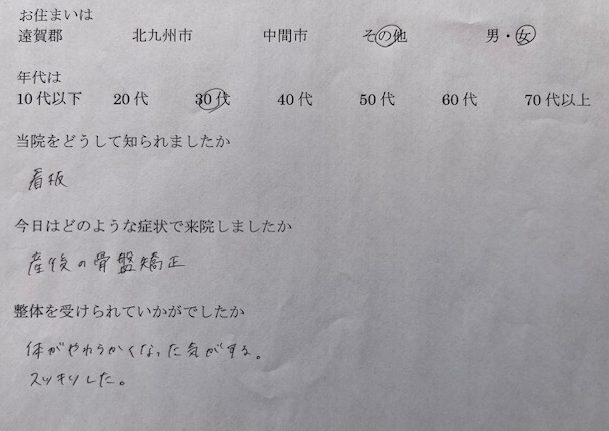 お住まいは
遠賀郡 北九州市 中間市 その他 男・女
年代は
10代以下 20代 30代 40代 50代 60代 70代以上
当院をどうして知られましたか
看板
今日はどのような症状で来院しましたか
産後の骨盤矯正
整体を受けられていかがでしたか
体がやわらかくなった気がする。
スッキリした。